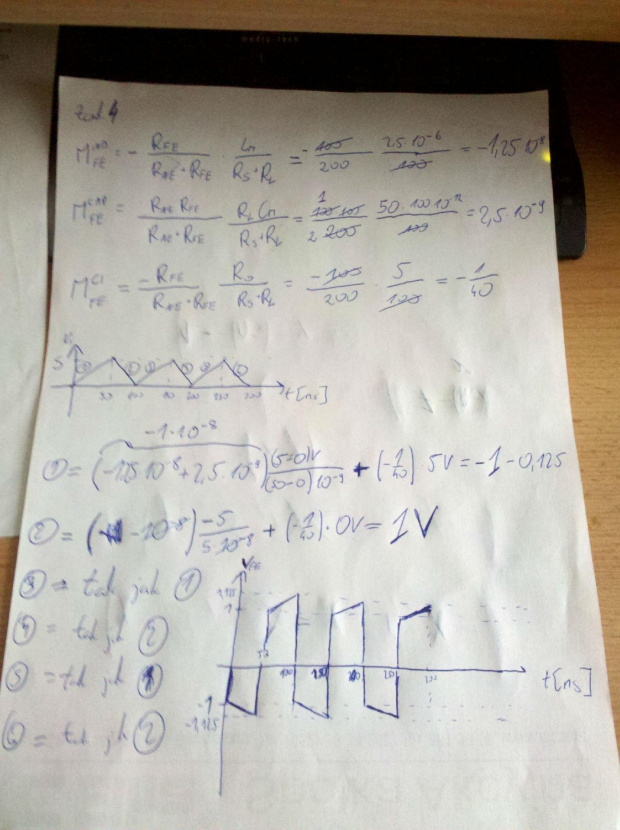 M_FE^IND = - R_FE / (R_NE + R_FE) · Lm / (R_S + R_L) = - 100 / 200 · 2,5·10^-6 / 100 = -1,25·10^-8
M_FE^CAP = R_NE R_FE / (R_NE + R_FE) · R_L Cm / (R_S + R_L) = 1 / 2 200 · 50·100·10^-12 / 100 = 2,5·10^-9
M_FE^CI = -R_FE / (R_NE + R_FE) · R_0 / (R_S + R_L) = -100 / 200 · 5 / 100 = - 1/40
5
50 100 150 200 250 300 t[ns]
-1·10^-8
① = (-1,25·10^-8 + 2,5·10^-9) (5-0)V / (50-0)10^-9 + (-1/40) · 5V = -1 - 0,125
② = (-10^-8) -5 / 5·10^-8 + (-1/40) · 0V = 1V
③ = tak jak ①
④ = tak jak ②
⑤ = tak jak ①
⑥ = tak jak ②
V_FE
1,125
1
50 100 150 200 250 300 t[ns]
-1
-1,125